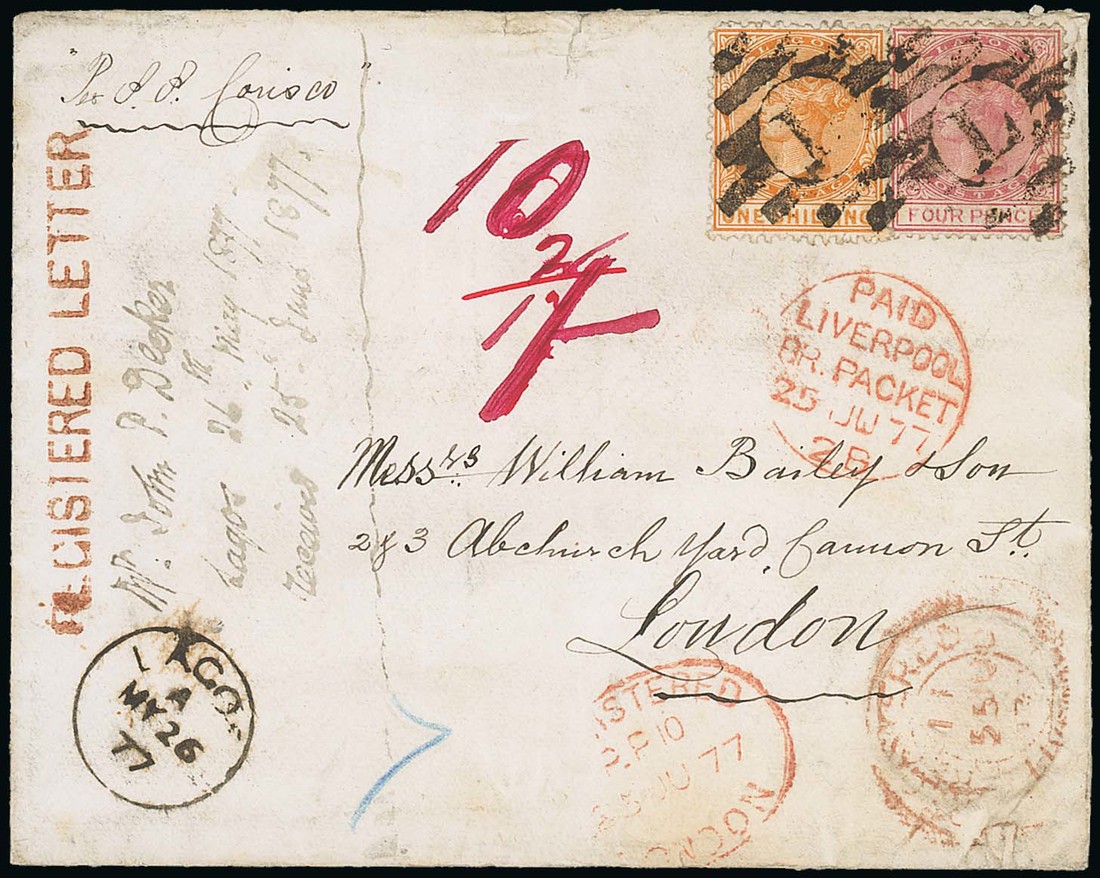 "Per S. S. Corisco"
LAGOS
LAGOS
L
L
ONE SHILLING
FOUR PENCE
REGISTERED LETTER
Mr. John P. Decker
Lagos 26th May 1877
received 25th June 1877.
10
PAID
LIVERPOOL
BR. PACKET
25 JU 77
2B
Messrs. William Bailey & Son
2 & 3 Abchurch Yard, Cannon St.
London
LAGOS
A
MY 26
77
ISTERED
10
JU 77
ONDON